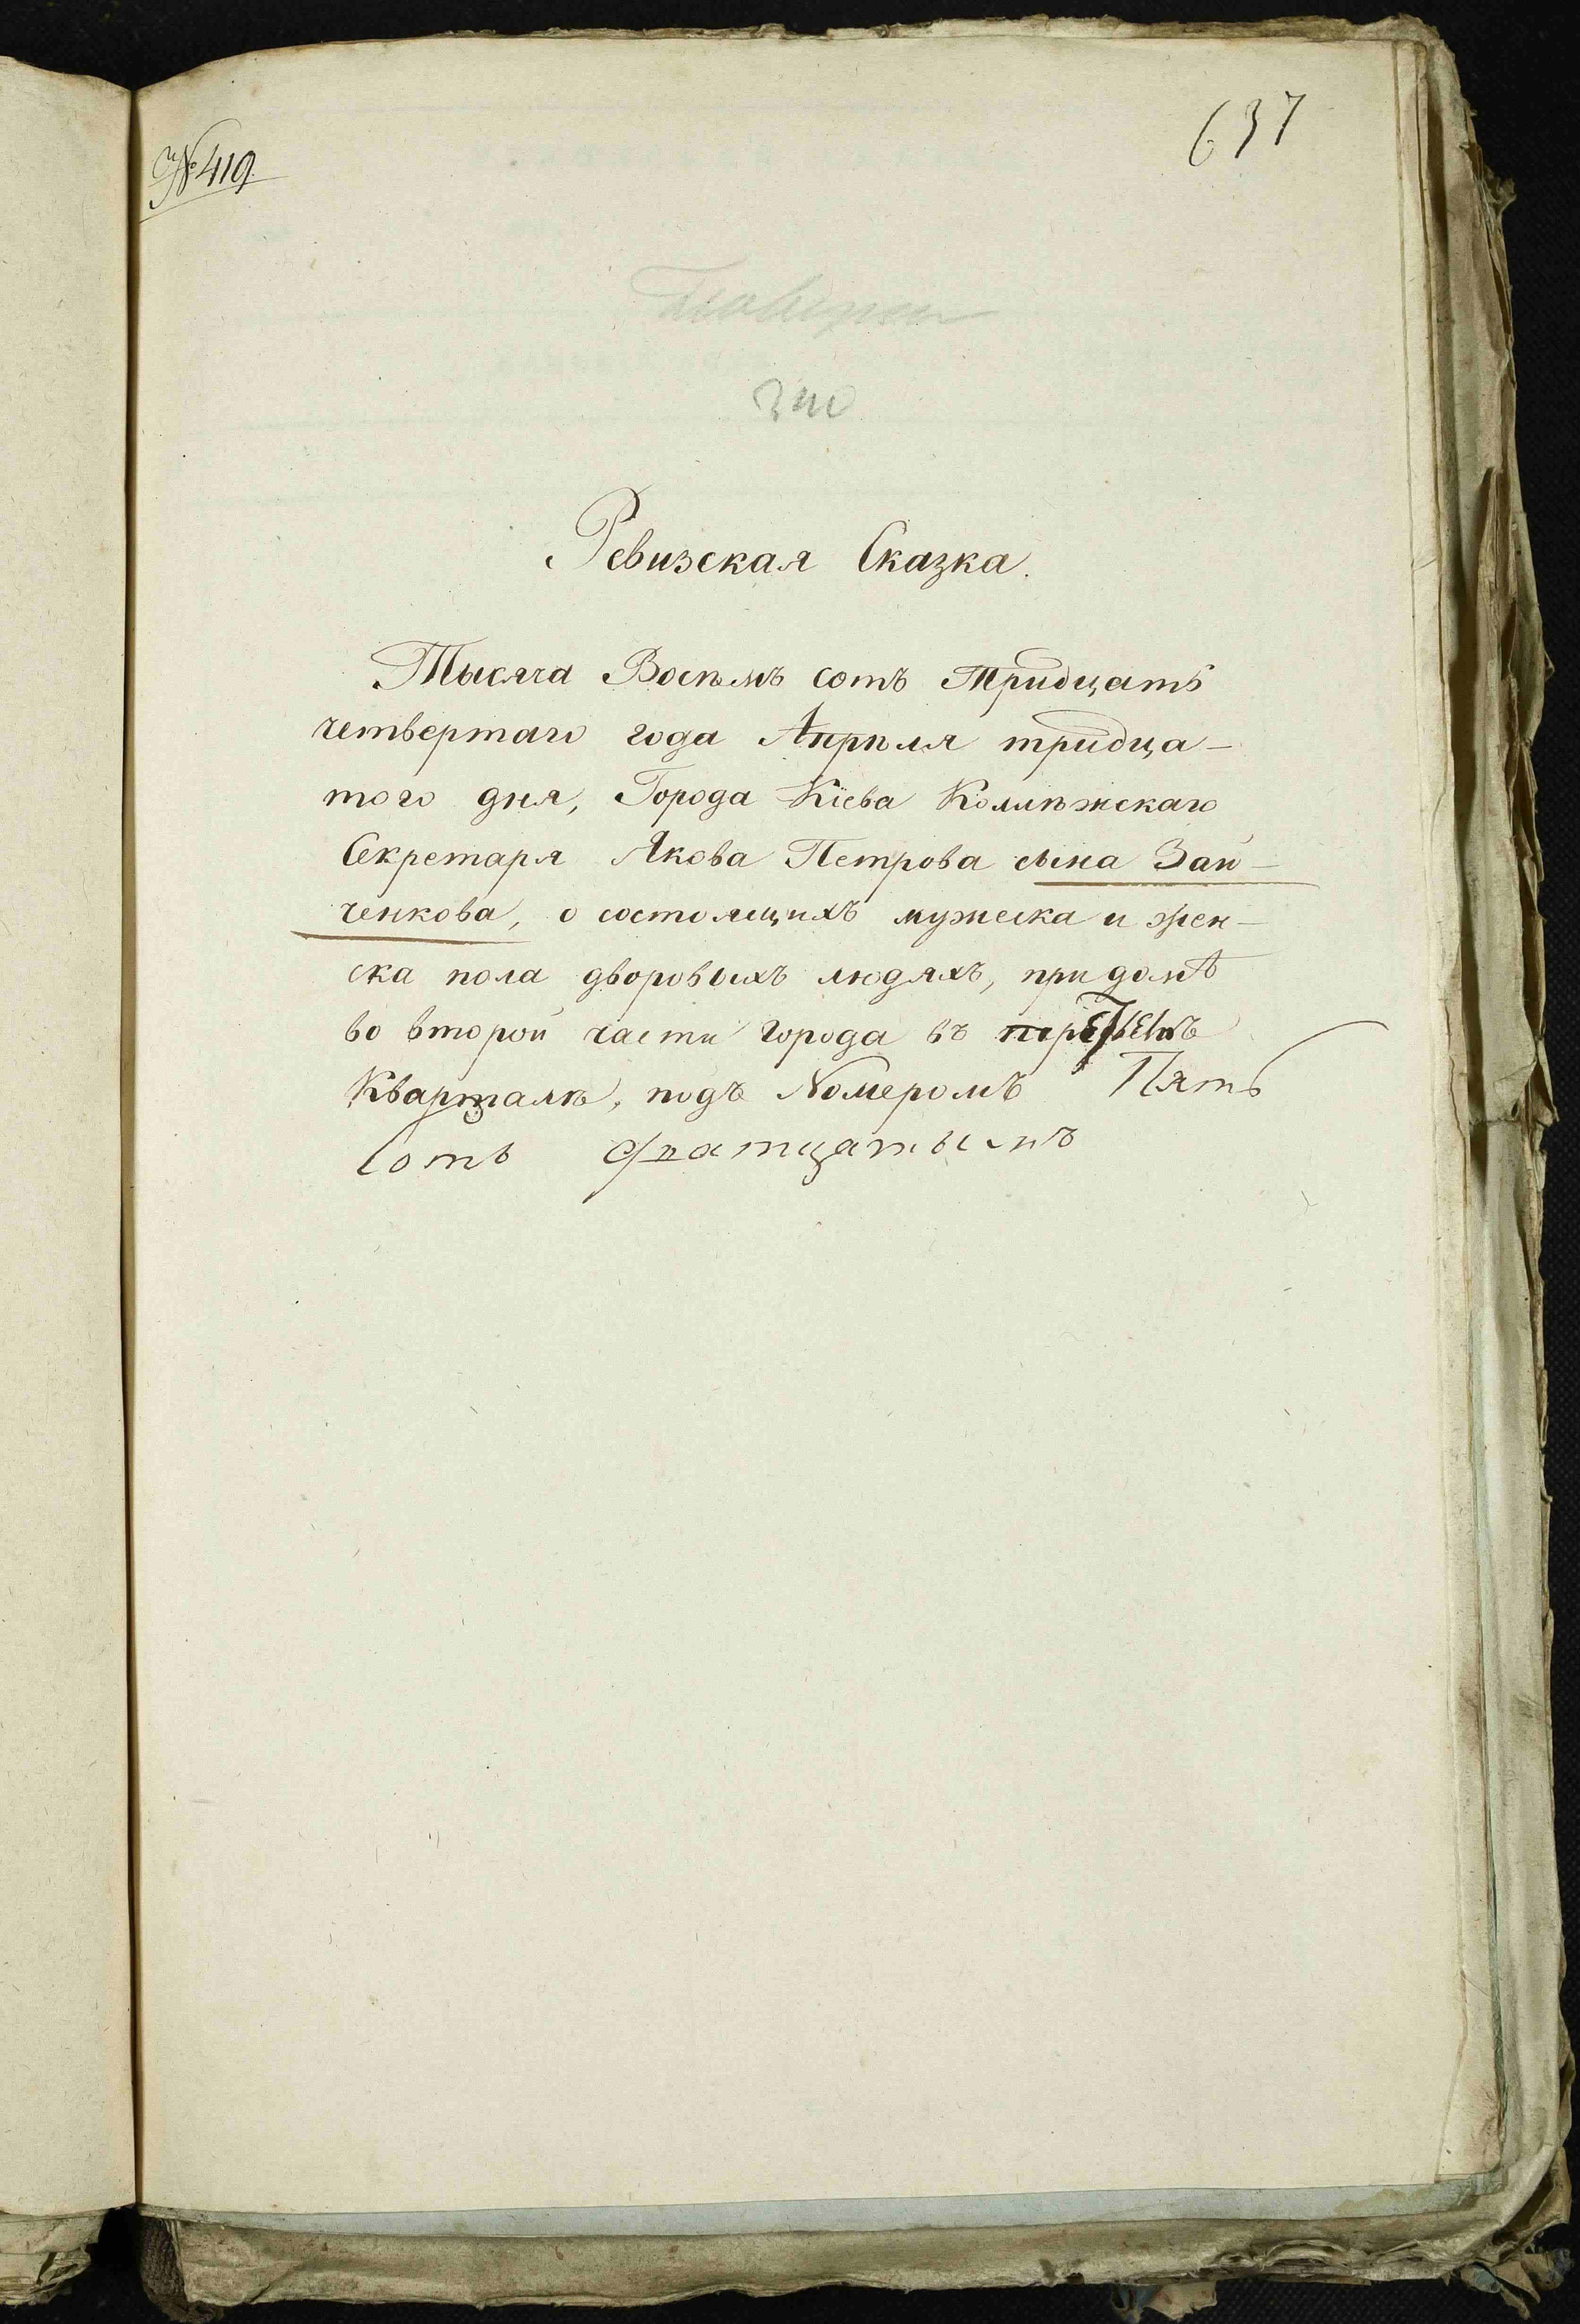 № 419.
637
Ревизская Сказка.
Тысяча Восемь сотъ тридцать
четвертаго года Апрѣля тридца-
того дня, Города Кіева Колѣжскаго
Секретаря Якова Петрова сына Зай-
ченкова, о состоящихъ мужеска и жен-
ска пола дворовыхъ людяхъ, при домѣ
во второй части города въ
Кварталѣ, подъ Номеромъ Пять
Сотъ